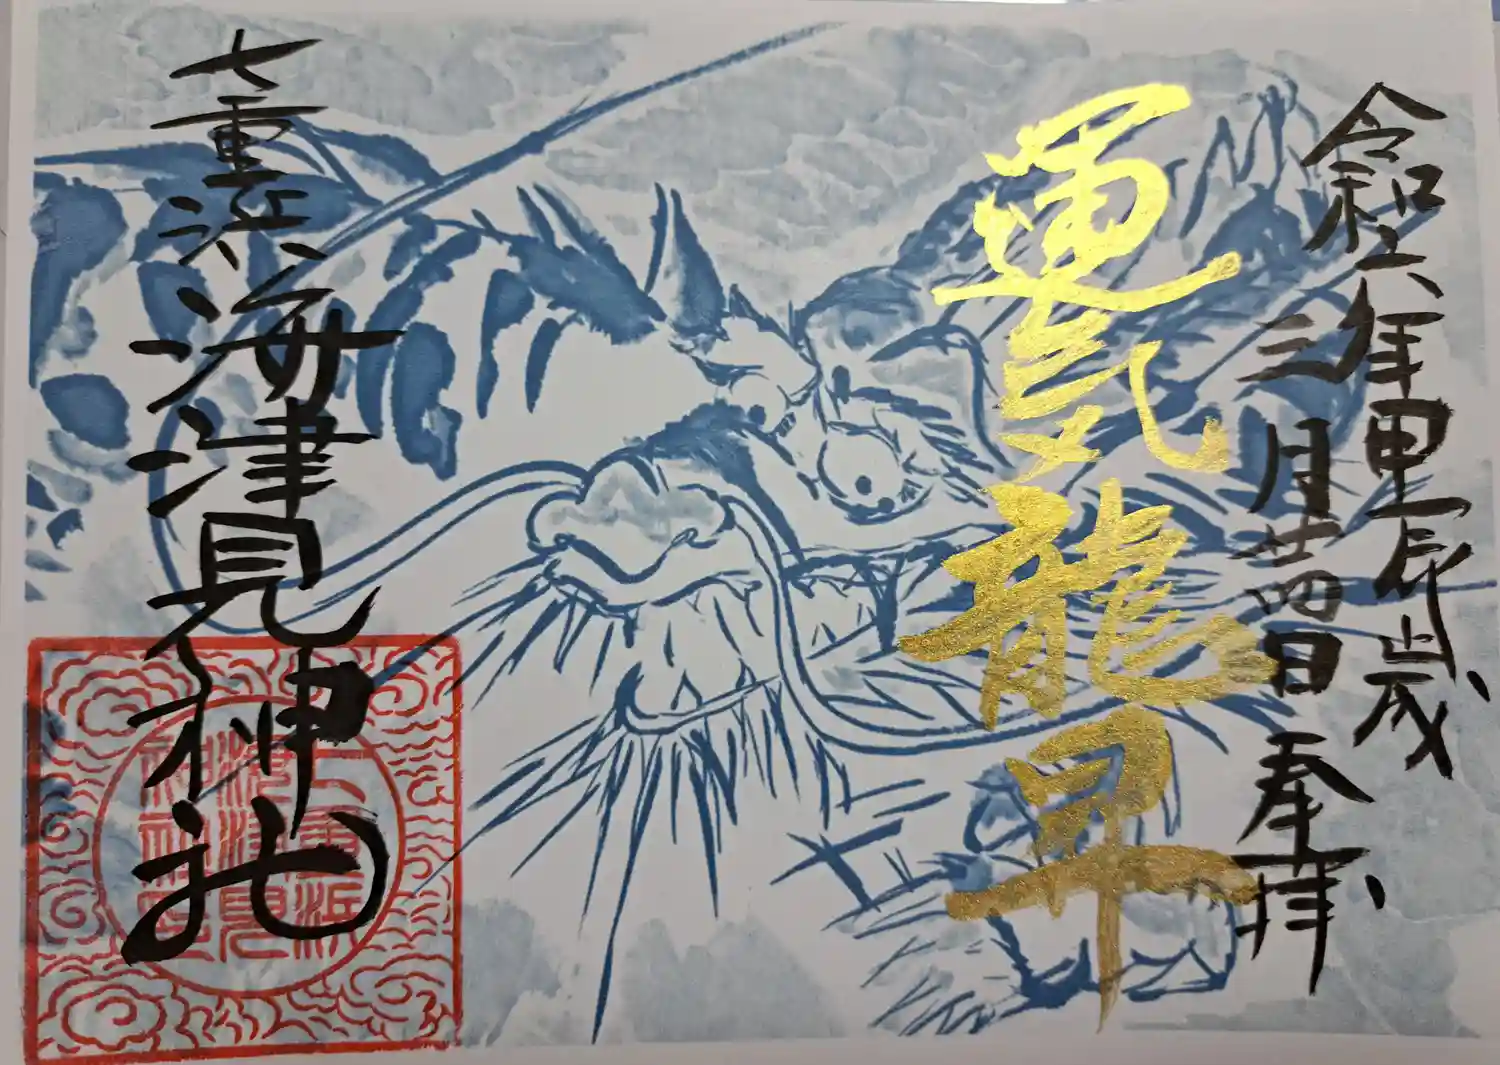 令和六年甲辰歳
三月廿四日 奉拝
運気龍昇
七重浜海津見神社
七重浜
海津見